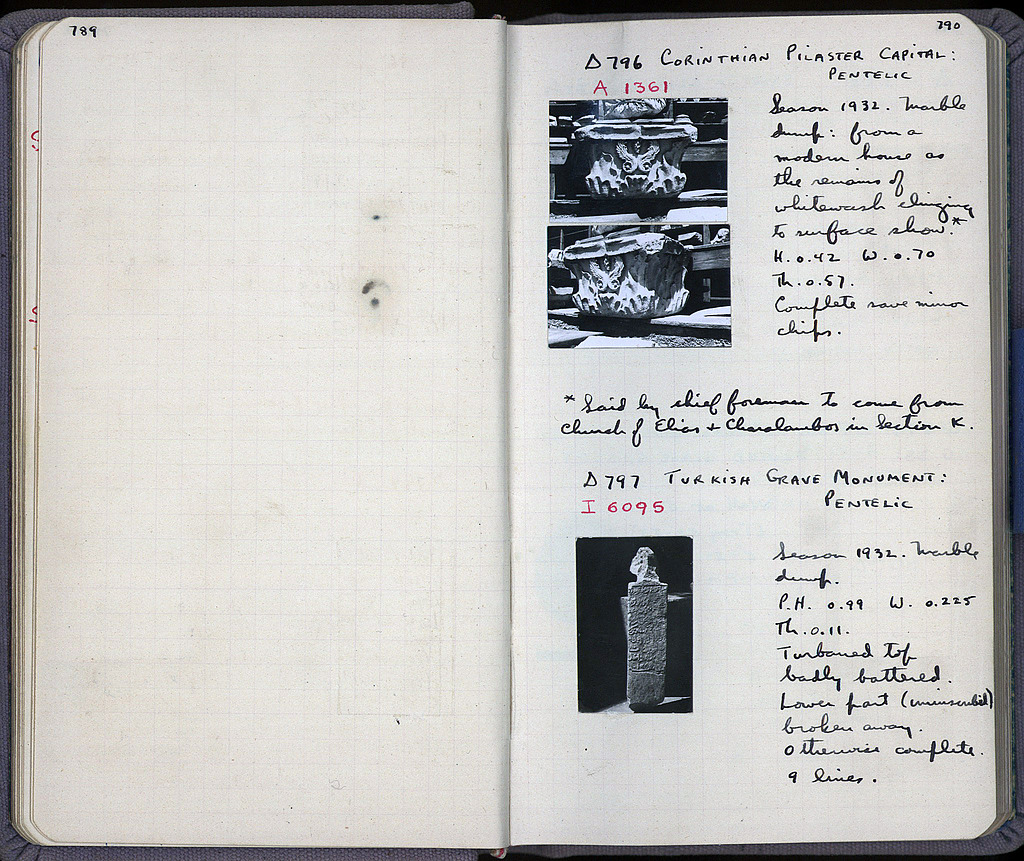 789
790
Δ 796 CORINTHIAN PILASTER CAPITAL:
PENTELIC
A 1361
Season 1932. Marble
dump: from a
modern house as
the remains of
whitewash clinging
to surface show.*
H. 0.42 W. 0.70
Th. 0.57.
Complete save minor
chips.
* Said by chief foreman to come from
church of Elias + Charalambos in Section K.
Δ 797 TURKISH GRAVE MONUMENT:
PENTELIC
I 6095
Season 1932. Marble
dump.
P.H. 0.99 W. 0.225
Th. 0.11.
Turbaned top
badly battered.
Lower part (uninscribed)
broken away.
Otherwise complete.
9 lines.